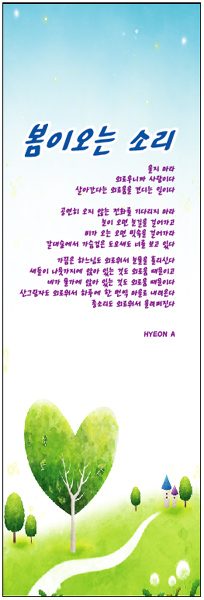 봄이오는 소리
울지 마라
외로우니까 사람이다
살아간다는 것은 외로움을 견디는 일이다
공연히 오지 않는 전화를 기다리지 마라
눈이 오면 눈길을 걸어가고
비가 오면 빗길을 걸어가라
갈대숲에서 가슴검은 도요새도 너를 보고 있다
가끔은 하느님도 외로워서 눈물을 흘리신다
새들이 나뭇가지에 앉아 있는 것도 외로움 때문이고
네가 물가에 앉아 있는 것도 외로움 때문이다
산그림자도 외로워서 하루에 한 번씩 마을로 내려온다
종소리도 외로워서 울려퍼진다
HYEON A